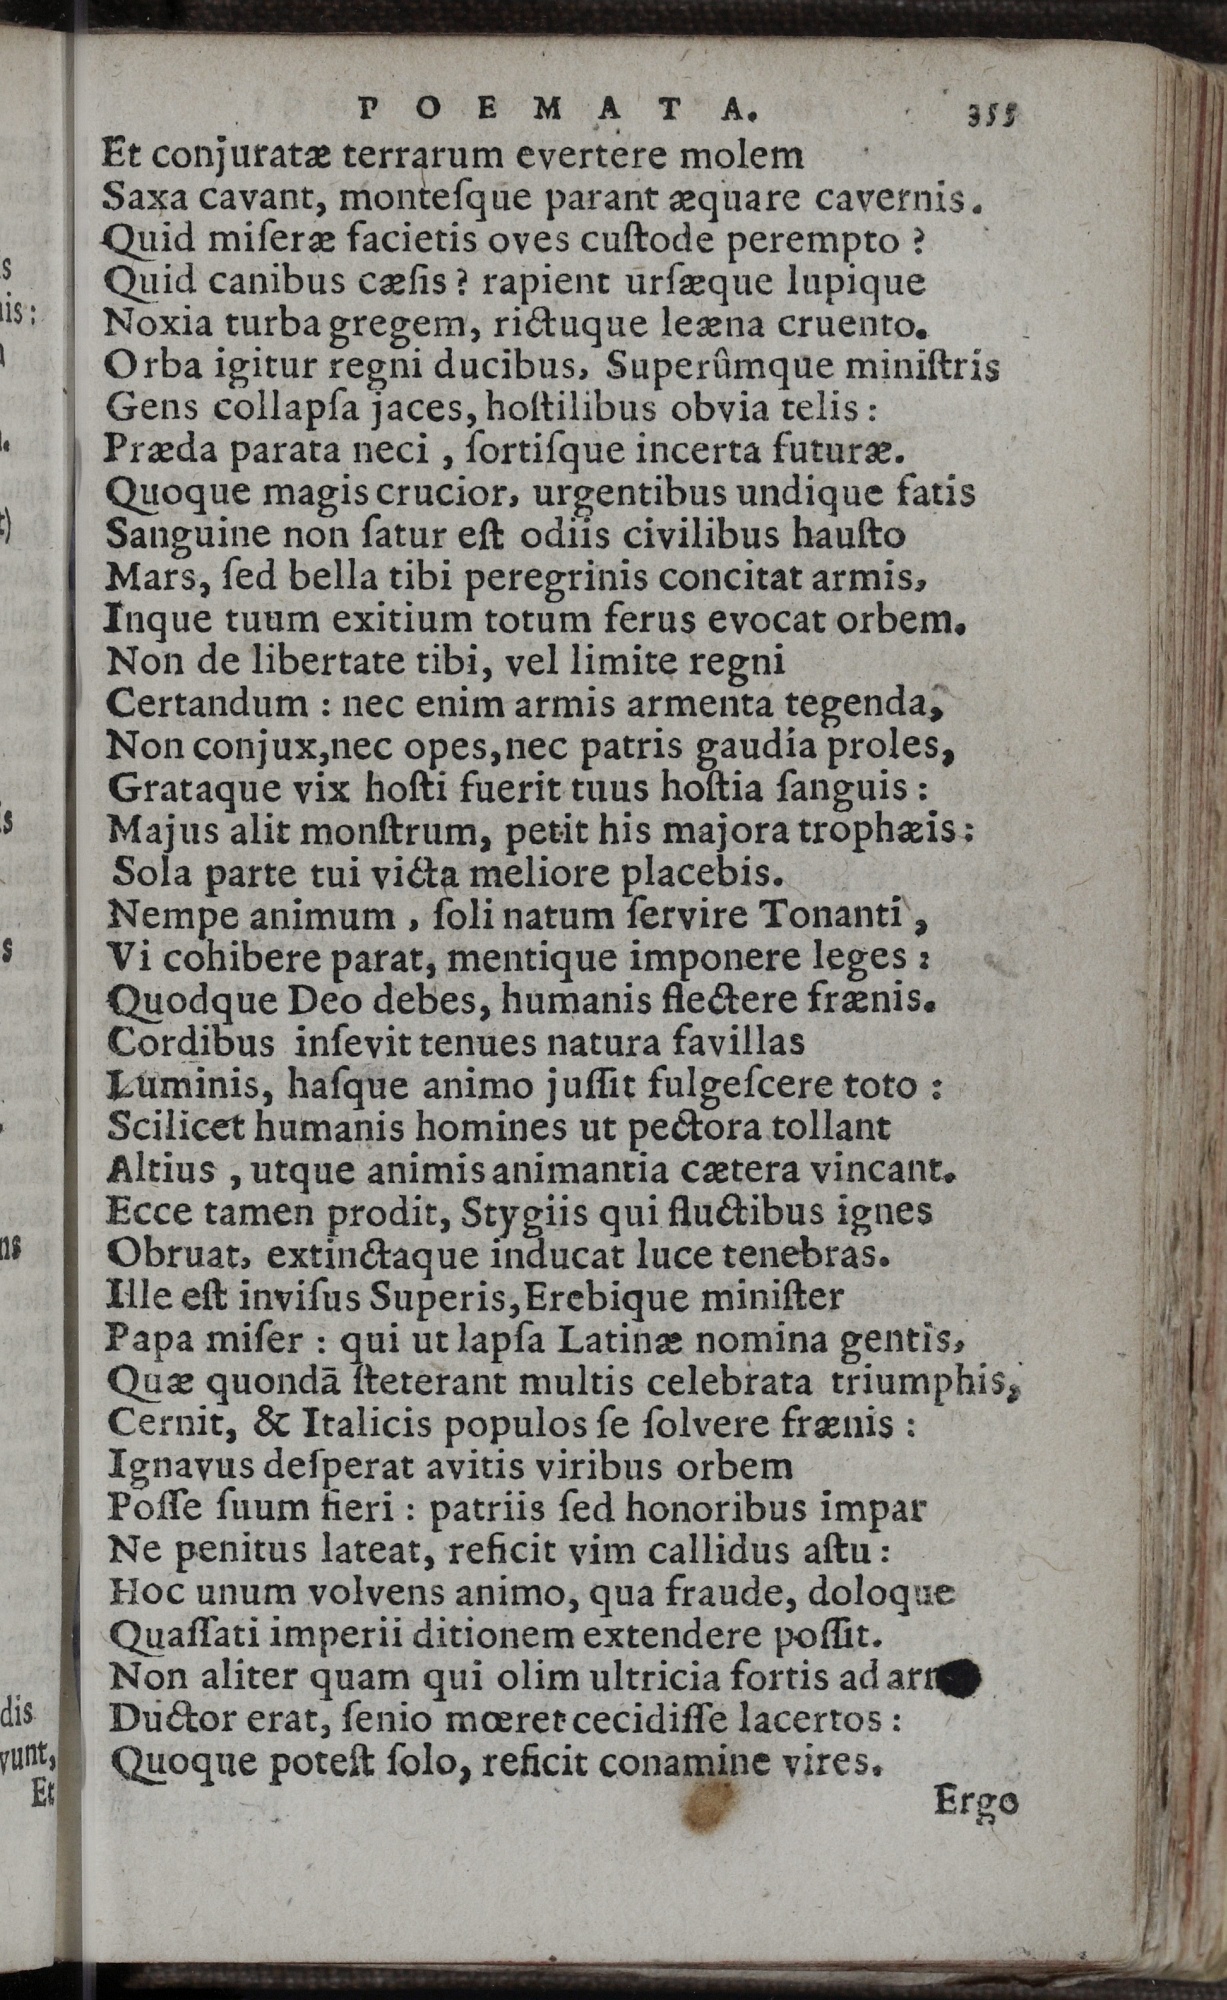 POEMATA. 355
Et conjuratæ terrarum evertere molem
Saxa cavant, monteſque parant æquare cavernis.
Quid miſeræ facietis oves cuſtode perempto ?
Quid canibus cæſis ? rapient urſæque lupique
Noxia turba gregem, rictuque leæna cruento.
Orba igitur regni ducibus, Superûmque miniſtris
Gens collapſa jaces, hoſtilibus obvia telis :
Præda parata neci , ſortiſque incerta futuræ.
Quoque magis crucior, urgentibus undique fatis
Sanguine non ſatur eſt odiis civilibus hauſto
Mars, ſed bella tibi peregrinis concitat armis,
Inque tuum exitium totum ferus evocat orbem.
Non de libertate tibi, vel limite regni
Certandum : nec enim armis armenta tegenda,
Non conjux,nec opes,nec patris gaudia proles,
Grataque vix hoſti fuerit tuus hoſtia ſanguis :
Majus alit monſtrum, petit his majora trophæis :
Sola parte tui victa meliore placebis.
Nempe animum , ſoli natum ſervire Tonanti ,
Vi cohibere parat, mentique imponere leges :
Quodque Deo debes, humanis flectere frænis.
Cordibus inſevit tenues natura favillas
Luminis, haſque animo juſſit fulgeſcere toto :
Scilicet humanis homines ut pectora tollant
Altius , utque animis animantia cætera vincant.
Ecce tamen prodit, Stygiis qui fluctibus ignes
Obruat, extinctaque inducat luce tenebras.
Ille eſt inviſus Superis,Erebique miniſter
Papa miſer : qui ut lapſa Latinæ nomina gentis,
Quæ quondā ſteterant multis celebrata triumphis,
Cernit, & Italicis populos ſe ſolvere frænis :
Ignavus deſperat avitis viribus orbem
Poſſe ſuum fieri : patriis ſed honoribus impar
Ne penitus lateat, reficit vim callidus aſtu :
Hoc unum volvens animo, qua fraude, doloque
Quaſſati imperii ditionem extendere poſſit.
Non aliter quam qui olim ultricia fortis ad
Ductor erat, ſenio mœret cecidiſſe lacertos :
Quoque poteſt ſolo, reficit conamine vires.
Ergo